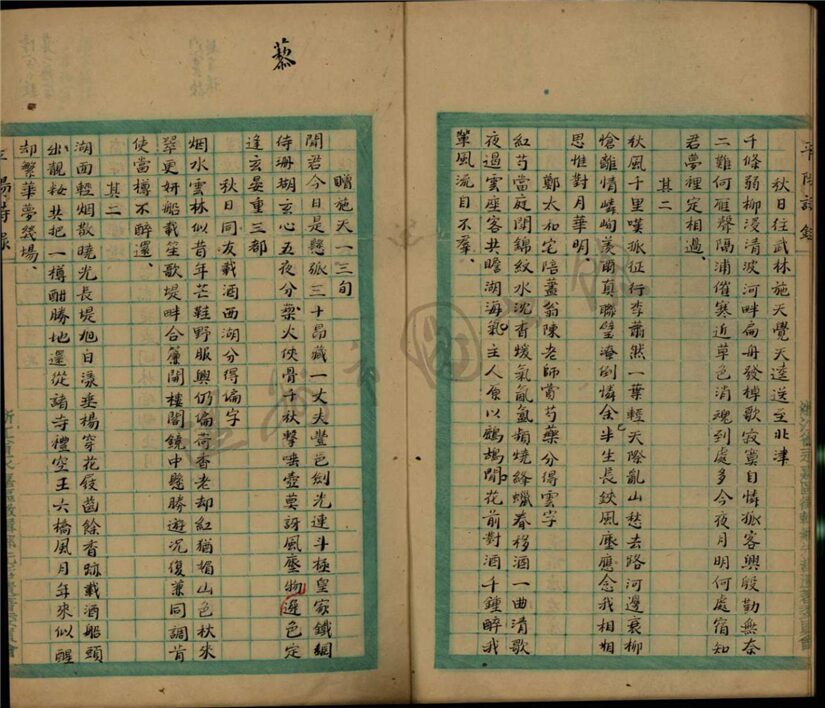 平陽詩錄
秋日往武林施天覺天逵送至北津
千條弱柳浸清波河畔扁舟發棹歌寂寞自憐孤客興殷勤無奈
二難何雁聲隔浦催寒近草色消魂到處多今夜月明何處宿知
君夢裡定相過、
其二
秋風千里嘆孤征行李蕭然一葉輕天際亂山愁去路河邊衰柳
愴離情嶙峋羨爾真聯璧淹倒憐余半生長鋏風塵應念我相
思惟對月華明、
鄭太和宅陪蓋翁陳老師賞芍藥分得雲字
紅芍當庭開錦紋水沉香煖氣氤氳稍燒絳蠟春移酒一曲清歌
夜過雲座客共瞻湖海氣主人原以鷓鴣聞花前對酒千鍾醉我
輩風流自不羣、
藜
贈施天一三旬
聞君今日是懸弧三十昂藏一丈夫豐邑劍光連斗極皇家鐵網
待珊瑚玄心五夜分藜火俠骨千秋擊唾壺莫訝風塵物色定
逢玄晏重三都
秋日同友載酒西湖分得偏字
烟水雲林似昔年芒鞋野服興仍偏荷香老却紅猶媚山色秋來
翠更妍船載笙歌堤畔合簾開樓閣鏡中懸勝遊況復兼同調肯
使當樽不醉還、
其二
湖面輕烟散曉光長堤旭日漾垂楊穿花屐齒餘香跡載酒船頭
出靚妝共把一樽酣勝地還從諸寺禮空王六橋風月年來似醒
却繁華夢幾場、
平陽詩錄